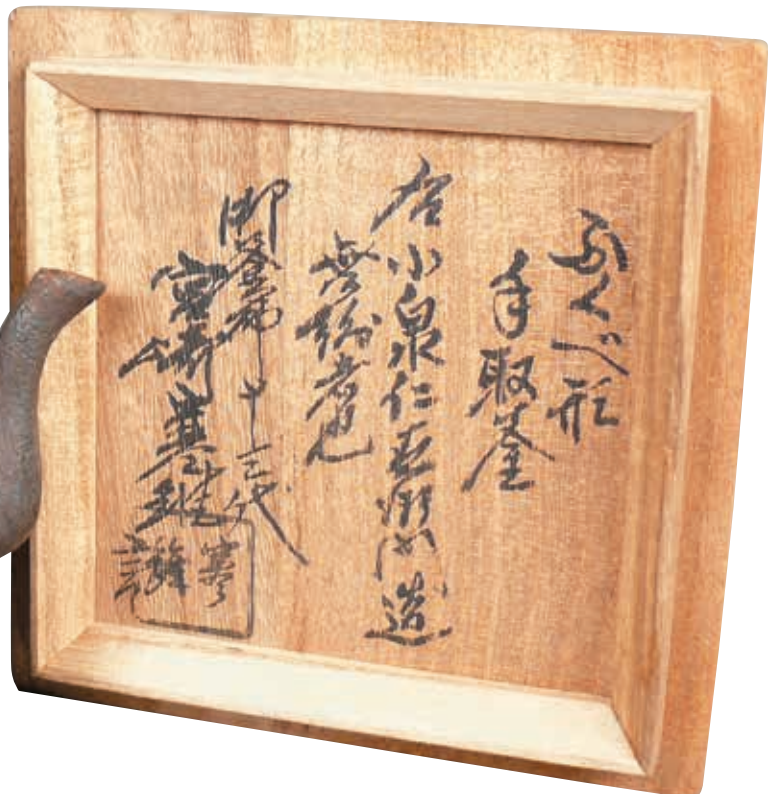 ふくべ形
手取釜
右小泉仁左衛門造
無紛者也
御釜師 十三代
宮崎寒雉